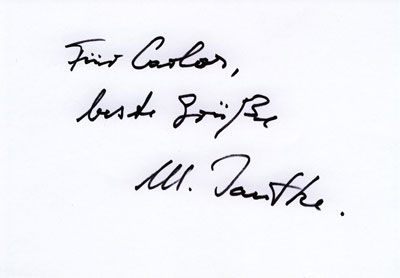 Für Carlos,
beste Grüße
M.